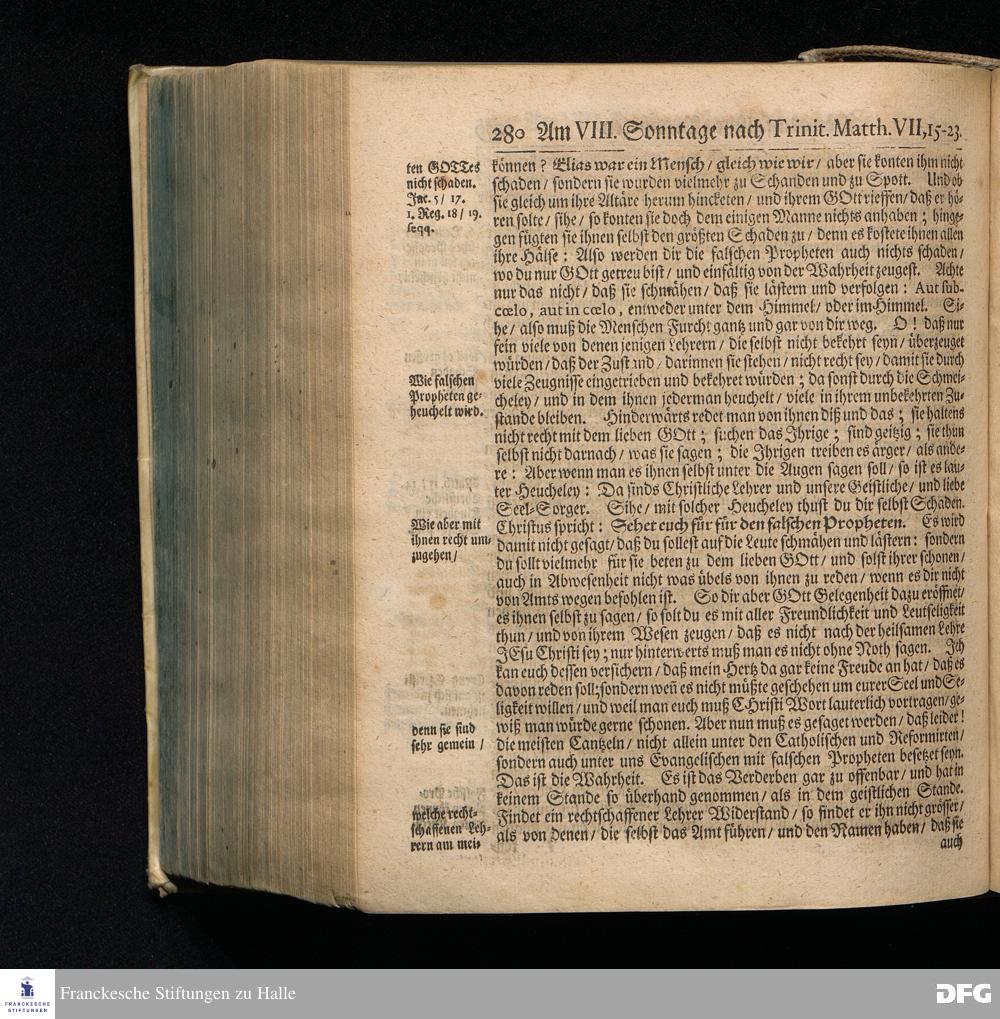 280 Am VIII. Sonntage nach Trinit. Matth. VII, 15-23.
ten GOTTes
nicht schaden.
Jac. 5/ 17.
1. Reg. 18/ 19.
seqq.
können? Elias war ein Mensch/ gleich wie wir/ aber sie konten ihm nicht
schaden/ sondern sie wurden vielmehr zu Schanden und zu Spott. Und ob
sie gleich um ihre Altäre herum hincketen/ und ihrem GOtt rieffen/ daß er hö-
ren solte/ sihe/ so konten sie doch dem einigen Manne nichts anhaben; hinge-
gen fügten sie ihnen selbst den größten Schaden zu/ denn es kostete ihnen allen
ihre Hälse: Also werden dir die falschen Propheten auch nichts schaden/
wo du nur GOtt getreu bist/ und einfältig von der Wahrheit zeugest. Achte
nur das nicht/ daß sie schmähen/ daß sie lästern und verfolgen: Aut sub-
cœlo, aut in cœlo, entweder unter dem Himmel/ oder im Himmel. Si-
he/ also muß die Menschen Furcht gantz und gar von dir weg. O! daß nur
fein viele von denen jenigen Lehrern/ die selbst nicht bekehrt seyn/ überzeuget
würden/ daß der Zustand/ darinnen sie stehen/ nicht recht sey/ damit sie durch
Wie falschen
Propheten ge-
heuchelt wird.
viele Zeugnisse eingetrieben und bekehret würden; da sonst durch die Schmei-
cheley/ und in dem ihnen jederman heuchelt/ viele in ihrem unbekehrten Zu-
stande bleiben. Hinderwärts redet man von ihnen diß und das; sie haltens
nicht recht mit dem lieben GOtt; suchen das Ihrige; sind geitzig; sie thun
selbst nicht darnach/ was sie sagen; die Ihrigen treiben es ärger/ als ande-
re: Aber wenn man es ihnen selbst unter die Augen sagen soll/ so ist es lau-
ter Heucheley: Da sinds Christliche Lehrer und unsere Geistliche/ und liebe
Seel-Sorger. Sihe/ mit solcher Heucheley thust du dir selbst Schaden.
Wie aber mit
ihnen recht um-
zugehen/
Christus spricht: Sehet euch für für den falschen Propheten. Es wird
damit nicht gesagt/ daß du sollest auf die Leute schmähen und lästern: sondern
du sollt vielmehr für sie beten zu dem lieben GOtt/ und solst ihrer schonen/
auch in Abwesenheit nicht was übels von ihnen zu reden/ wenn es dir nicht
von Amts wegen befohlen ist. So dir aber GOtt Gelegenheit dazu eröffnet/
es ihnen selbst zu sagen/ so solt du es mit aller Freundlichkeit und Leutseligkeit
thun/ und von ihrem Wesen zeugen/ daß es nicht nach der heilsamen Lehre
JEsu Christi sey; nur hinterwerts muß man es nicht ohne Noth sagen. Ich
kan euch dessen versichern/ daß mein Hertz da gar keine Freude an hat/ daß es
davon reden soll; sondern weñ es nicht müßte geschehen um eurer Seel und Se-
ligkeit willen/ und weil man euch muß CHristi Wort lauterlich vortragen/ ge-
wiß man würde gerne schonen. Aber nun muß es gesaget werden/ daß leider!
denn sie sind
sehr gemein/
die meisten Cantzeln/ nicht allein unter den Catholischen und Reformirten/
sondern auch unter uns Evangelischen mit falschen Propheten besetzet seyn.
Das ist die Wahrheit. Es ist das Verderben gar zu offenbar/ und hat in
keinem Stande so überhand genommen/ als in dem geistlichen Stande.
welche recht-
schaffenen Leh-
rern am mei-
Findet ein rechtschaffener Lehrer Widerstand/ so findet er ihn nicht grösser/
als von denen/ die selbst das Amt führen/ und den Namen haben/ daß sie
auch
FRANCKESCHE
STIFTUNGEN
Franckesche Stiftungen zu Halle
DFG